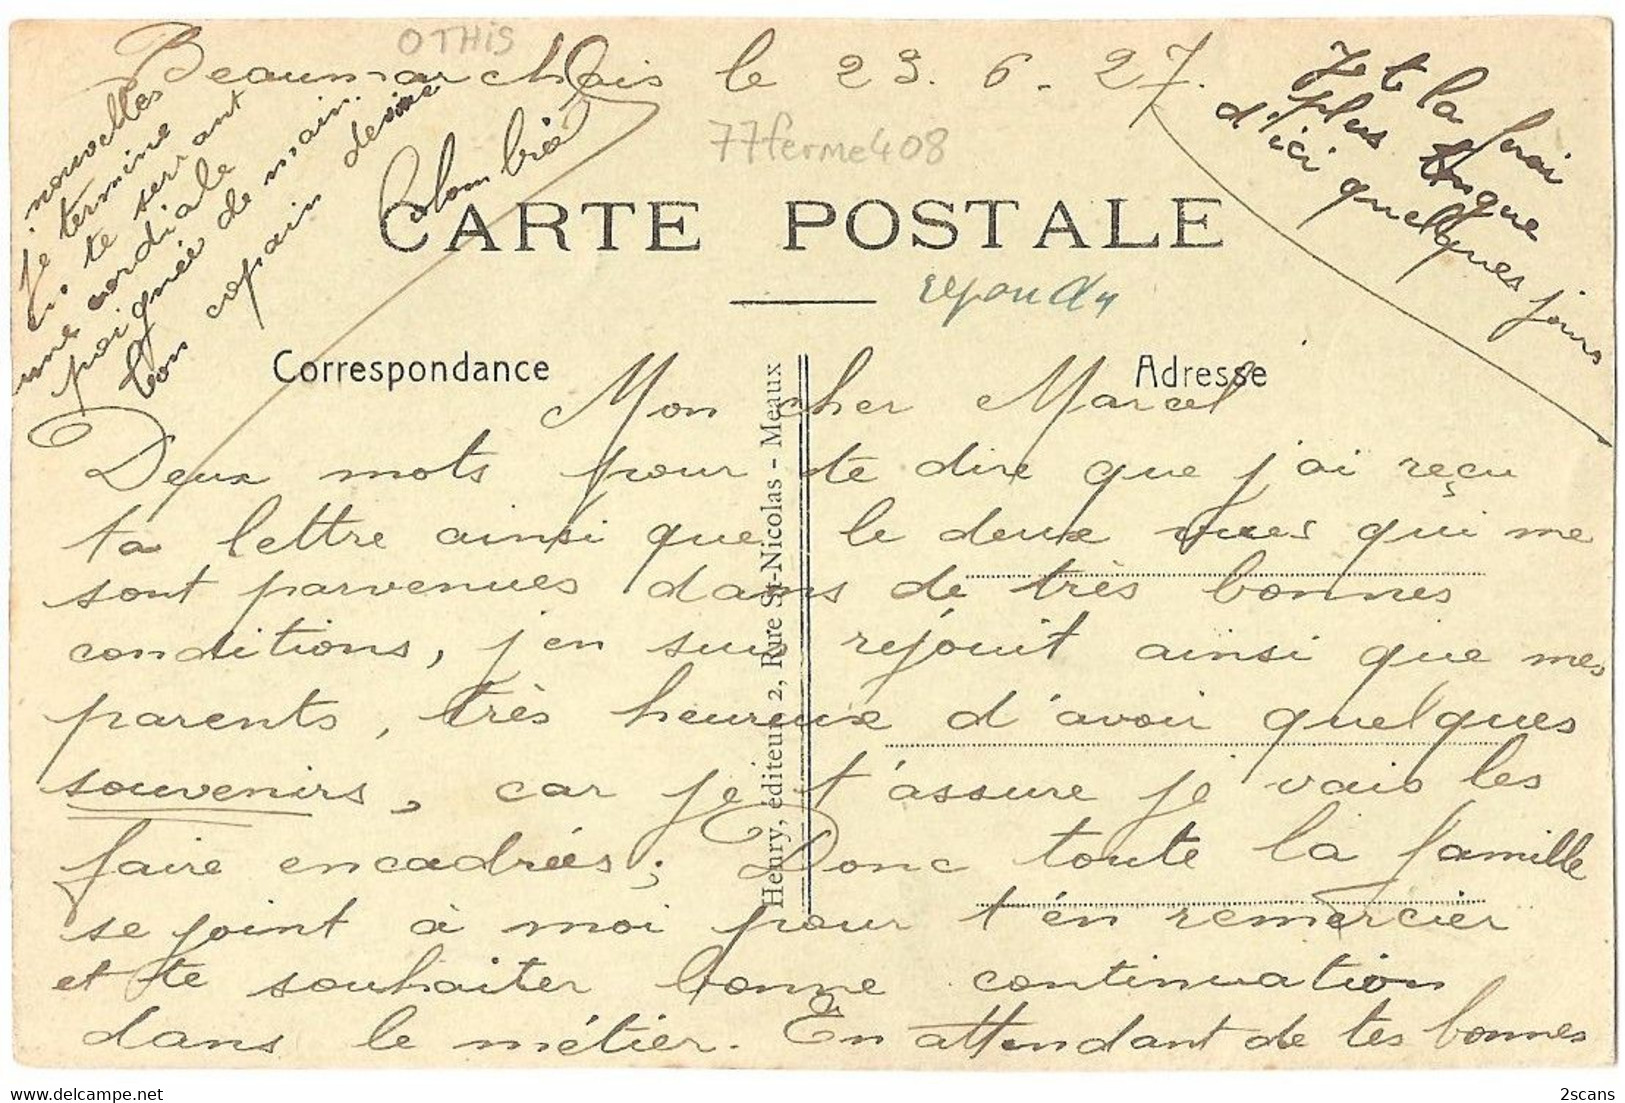 OTHIS
Beaumarchais le 23.6.27.
77ferme408
CARTE POSTALE
repondu
Correspondance
Adresse
Mon cher Marcel
Deux mots pour te dire que j'ai reçu
ta lettre ainsi que le deux vues qui me
sont parvenues dans de très bonnes
conditions, j'en suis rejouit ainsi que mes
parents, très heureux d'avoir quelques
souvenirs, car je t'assure je vais les
faire encadrées; Donc toute la famille
se joint à moi pour t'en remercier
et te souhaiter bonne continuation
dans le métier. En attendant de tes bonnes
nouvelles
je termine
en te servant
une cordiale
poignée de main.
ton copain
Colombié
Je te la ferai
plus longue
d'ici quelques jours
Henry, éditeur, 2, Rue St-Nicolas - Meaux
2scans